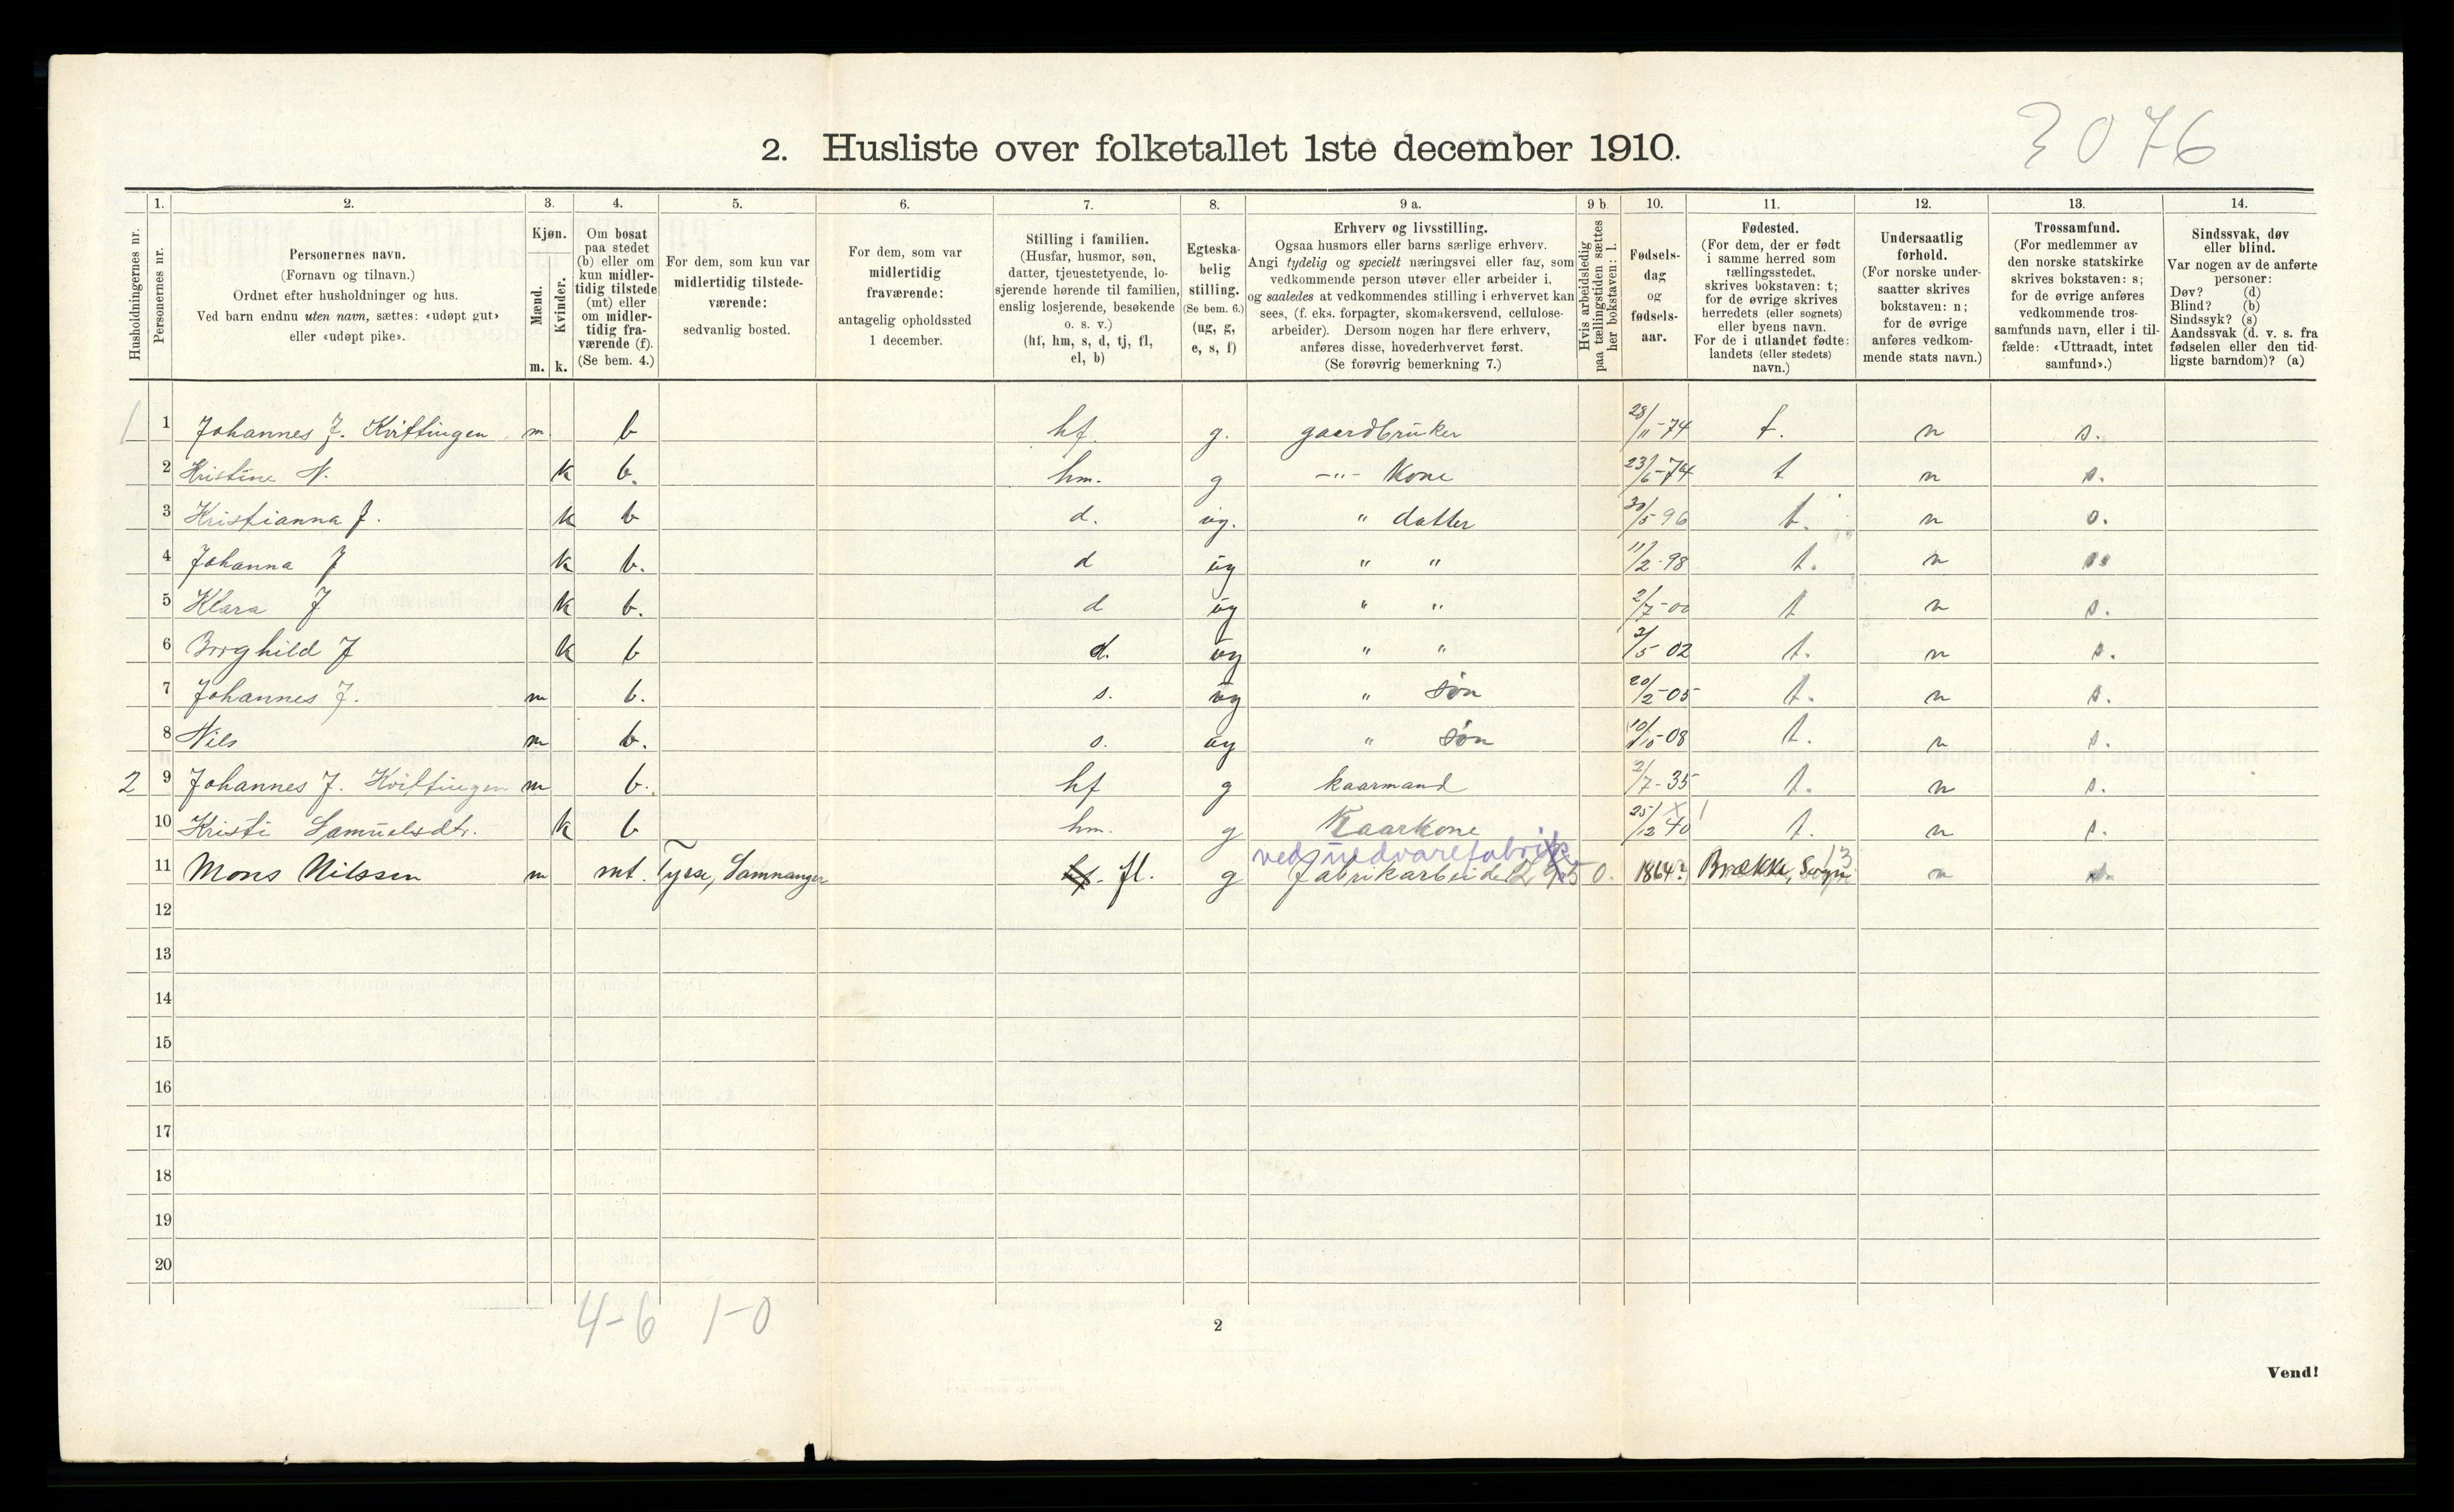 3076
2. Husliste over folketallet 1ste december 1910.
Husholdningernes nr.
1.
Personernes nr.
2.
Personernes navn.
(Fornavn og tilnavn.)
Ordnet efter husholdninger og hus.
Ved barn endnu uten navn, sættes: «udøpt gut»
eller «udøpt pike».
3.
Kjøn.
Mænd.
m.
Kvinder.
k.
4.
Om bosat
paa stedet
(b) eller om
kun midler-
tidig tilstede
(mt) eller
om midler-
tidig fra-
værende (f).
(Se bem. 4.)
5.
For dem, som kun var
midlertidig tilstede-
værende:
sedvanlig bosted.
6.
For dem, som var
midlertidig
fraværende:
antagelig opholdssted
1 december.
7.
Stilling i familien.
(Husfar, husmor, søn,
datter, tjenestetyende, lo-
sjerende hørende til familien,
enslig losjerende, besøkende
o. s. v.)
(hf, hm, s, d, tj, fl,
el, b)
8.
Egteska-
belig
stilling.
(Se bem. 6.)
(ug, g,
e, s, f)
9 a.
Erhverv og livsstilling.
Ogsaa husmors eller barns særlige erhverv.
Angi tydelig og specielt næringsvei eller fag, som
vedkommende person utøver eller arbeider i,
og saaledes at vedkommendes stilling i erhvervet kan
sees, (f. eks. forpagter, skomakersvend, cellulose-
arbeider). Dersom nogen har flere erhverv,
anføres disse, hovederhvervet først.
(Se forøvrig bemerkning 7.)
9 b
Hvis arbeidsledig
paa tællingstiden sættes
her bokstaven: l.
10.
Fødsels-
dag
og
fødsels-
aar.
11.
Fødested.
(For dem, der er født
i samme herred som
tællingsstedet,
skrives bokstaven: t;
for de øvrige skrives
herredets (eller sognets)
eller byens navn.
For de i utlandet fødte:
landets (eller stedets)
navn.)
12.
Undersaatlig
forhold.
(For norske under-
saatter skrives
bokstaven: n;
for de øvrige
anføres vedkom-
mende stats navn.)
13.
Trossamfund.
(For medlemmer av
den norske statskirke
skrives bokstaven: s;
for de øvrige anføres
vedkommende tros-
samfunds navn, eller i til-
fælde: «Uttraadt, intet
samfund».)
14.
Sindssvak, døv
eller blind.
Var nogen av de anførte
personer:
Døv? (d)
Blind? (b)
Sindssyk? (s)
Aandssvak (d. v. s. fra
fødselen eller den tid-
ligste barndom)? (a)
1 1 Johannes J. Kvittingen m b hf. g. gaardbruker 28/11-74 t. n s.
2 Kristine N. k b. hm. g -"- Kone 23/6-74 t n s.
3 Kristianna J. k b d. ug. " datter 30/5 96 t. n s.
4 Johanna J k b. d ug " " 11/2-98 t. n s
5 Klara J k b. d ug " " 2/7-00 t n s.
6 Borghild J k b d. ug " " 2/5 02 t. n s.
7 Johannes J. m b. s. ug " søn 20/2-05 t. n s.
8 Nils m b. s. ug " søn 10/10-08 t. n s.
2 9 Johannes J. Kvittingen m b. hf g kaarmand 2/7-35 t. n s.
10 Kristi Samuelsdtr. k b hm. g Kaarkone 25/12 40 t. n s.
ved uldvarefabrik
11 Mons Nilssen m mt. Tysse, Samnanger fl. g fabrikarbeider 0. 1864? Brække, Sogn n s.
12
13
14
15
16
17
18
19
20
4-6 1-0
2
Vend!